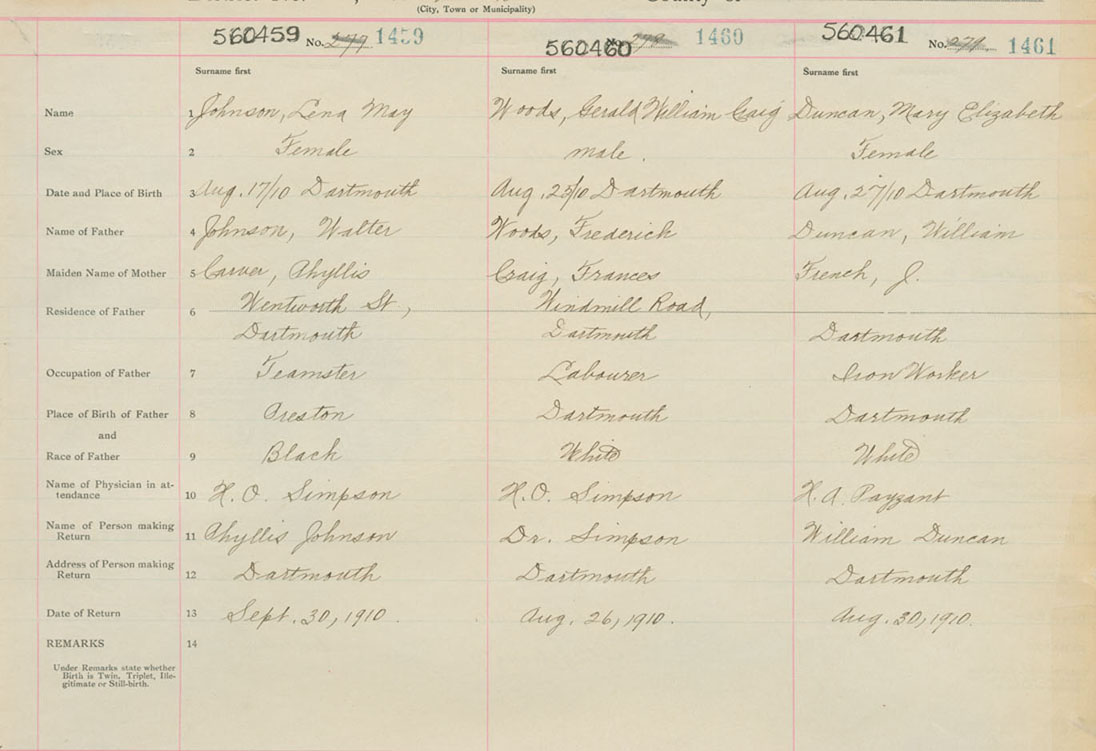 (City, Town or Municipality)
560459 No. 1459 560460 1460 560461 No. 1461
Surname first Surname first Surname first
Name 1 Johnson, Lena May Woods, Gerald William Craig Duncan, Mary Elizabeth
Sex 2 Female male. Female
Date and Place of Birth 3 Aug. 17/10 Dartmouth Aug. 25/10 Dartmouth Aug. 27/10 Dartmouth
Name of Father 4 Johnson, Walter Woods, Frederick Duncan, William
Maiden Name of Mother 5 Carver, Phyllis Craig, Frances French, J.
Residence of Father 6 Wentworth St, Windmill Road,
Dartmouth Dartmouth Dartmouth
Occupation of Father 7 Teamster Labourer Iron Worker
Place of Birth of Father 8 Preston Dartmouth Dartmouth
and
Race of Father 9 Black White White
Name of Physician in at-
tendance 10 H. O. Simpson H. O. Simpson H. A. Payzant
Name of Person making
Return 11 Phyllis Johnson Dr. Simpson William Duncan
Address of Person making
Return 12 Dartmouth Dartmouth Dartmouth
Date of Return 13 Sept. 30, 1910. Aug. 26, 1910. Aug. 30, 1910.
REMARKS 14
Under Remarks state whether
Birth is Twin, Triplet, Ille-
gitimate or Still-birth.